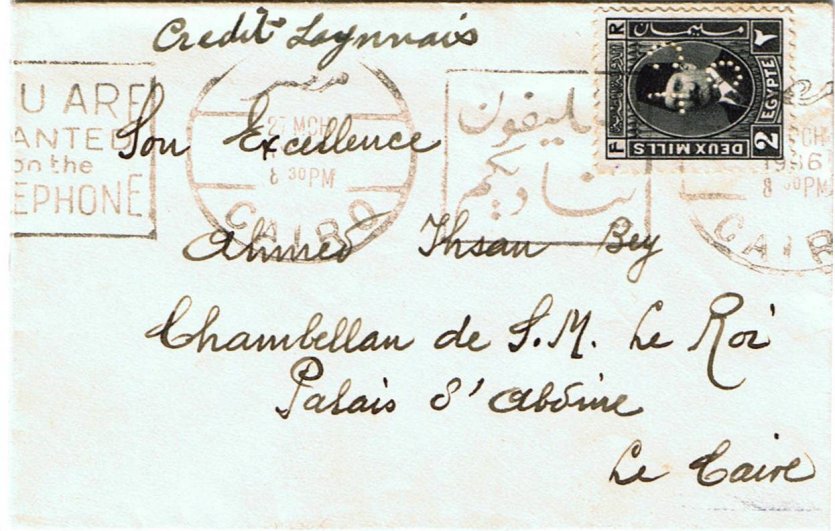 Credit Loynnais
Son Excellence
Ahmed Ihsan Bey
Chambellan de S. M. Le Roi
Palais d'Abdine
Le Caire
U ARE
ANTED
on the
EPHONE
27 MCH
8 30 PM
CAIRO
تليفون
يناديكم
1936
8 30 PM
CAIR
F R
مليمان
٢
2 EGYPTE
DEUX MILLS